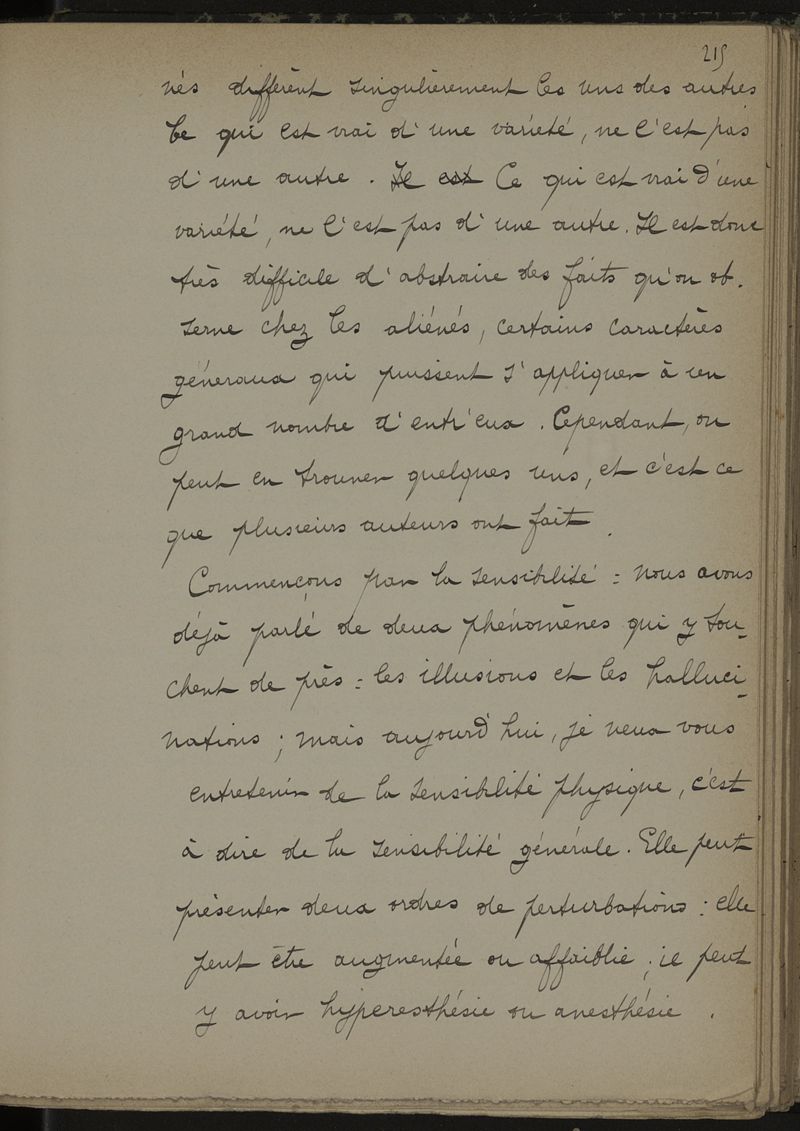 215
nés diffèrent singulièrement les uns des autres
Ce qui est vrai d'une variété, ne l'est pas
d'une autre. Il est Ce qui est vrai d'une
variété, ne l'est pas d'une autre. Il est donc
très difficile d'abstraire des faits qu'on ob-
serve chez les aliénés, certains caractères
généraux qui puissent s'appliquer à un
grand nombre d'entr'eux. Cependant, on
peut en trouver quelques uns, et c'est ce
que plusieurs auteurs ont fait.
Commençons par la sensibilité : nous avons
déjà parlé de deux phénomènes qui y tou-
chent de près : les illusions et les halluci-
nations ; mais aujourd'hui, je veux vous
entretenir de la sensibilité physique, c'est
à dire de la sensibilité générale. Elle peut
présenter deux ordres de perturbations : elle
peut être augmentée ou affaiblie ; il peut
y avoir hyperesthésie ou anesthésie.